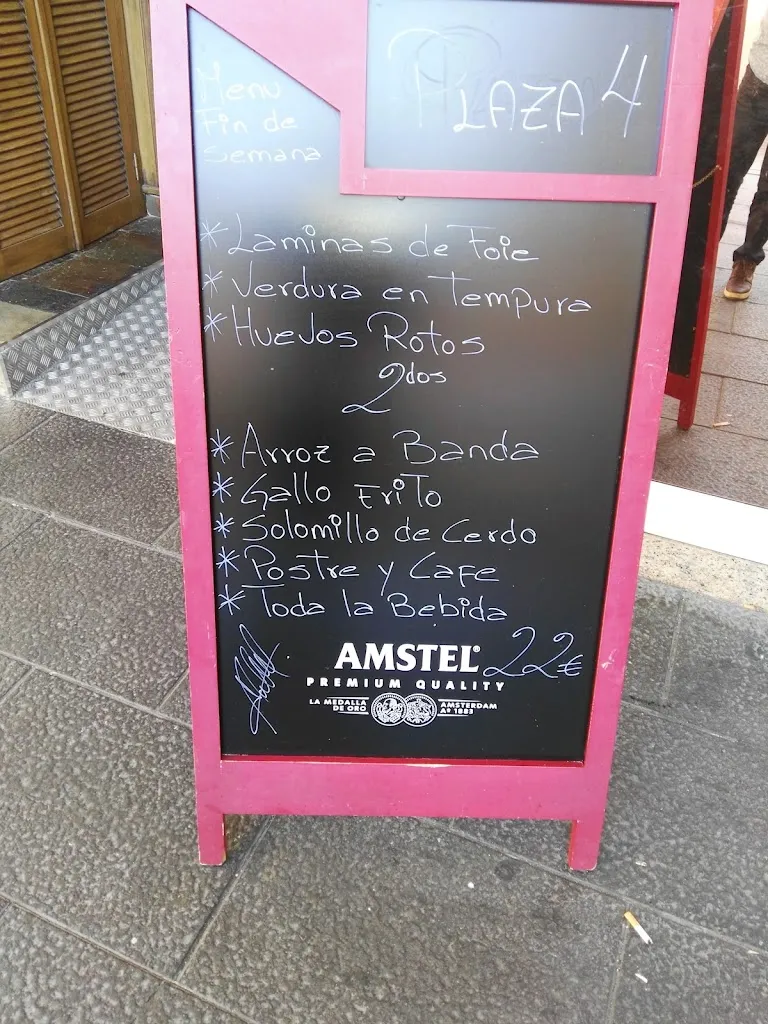 Menu
Fin de
semana
PLAZA 4
* Laminas de Foie
* Verdura en Tempura
* Huevos Rotos
2dos
* Arroz a Banda
* Gallo Frito
* Solomillo de Cerdo
* Postre y Cafe
* Toda la Bebida
22€
AMSTEL®
PREMIUM QUALITY
LA MEDALLA
DE ORO
AMSTERDAM
Aº 1883